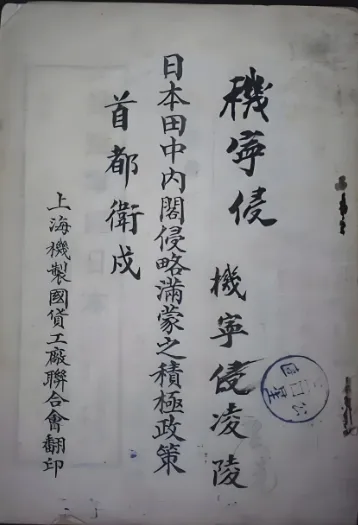 機寧侵
機寧侵凌陵
日本田中內閣侵略滿蒙之積極政策
首都衛戍
上海機製國貨工廠聯合會翻印